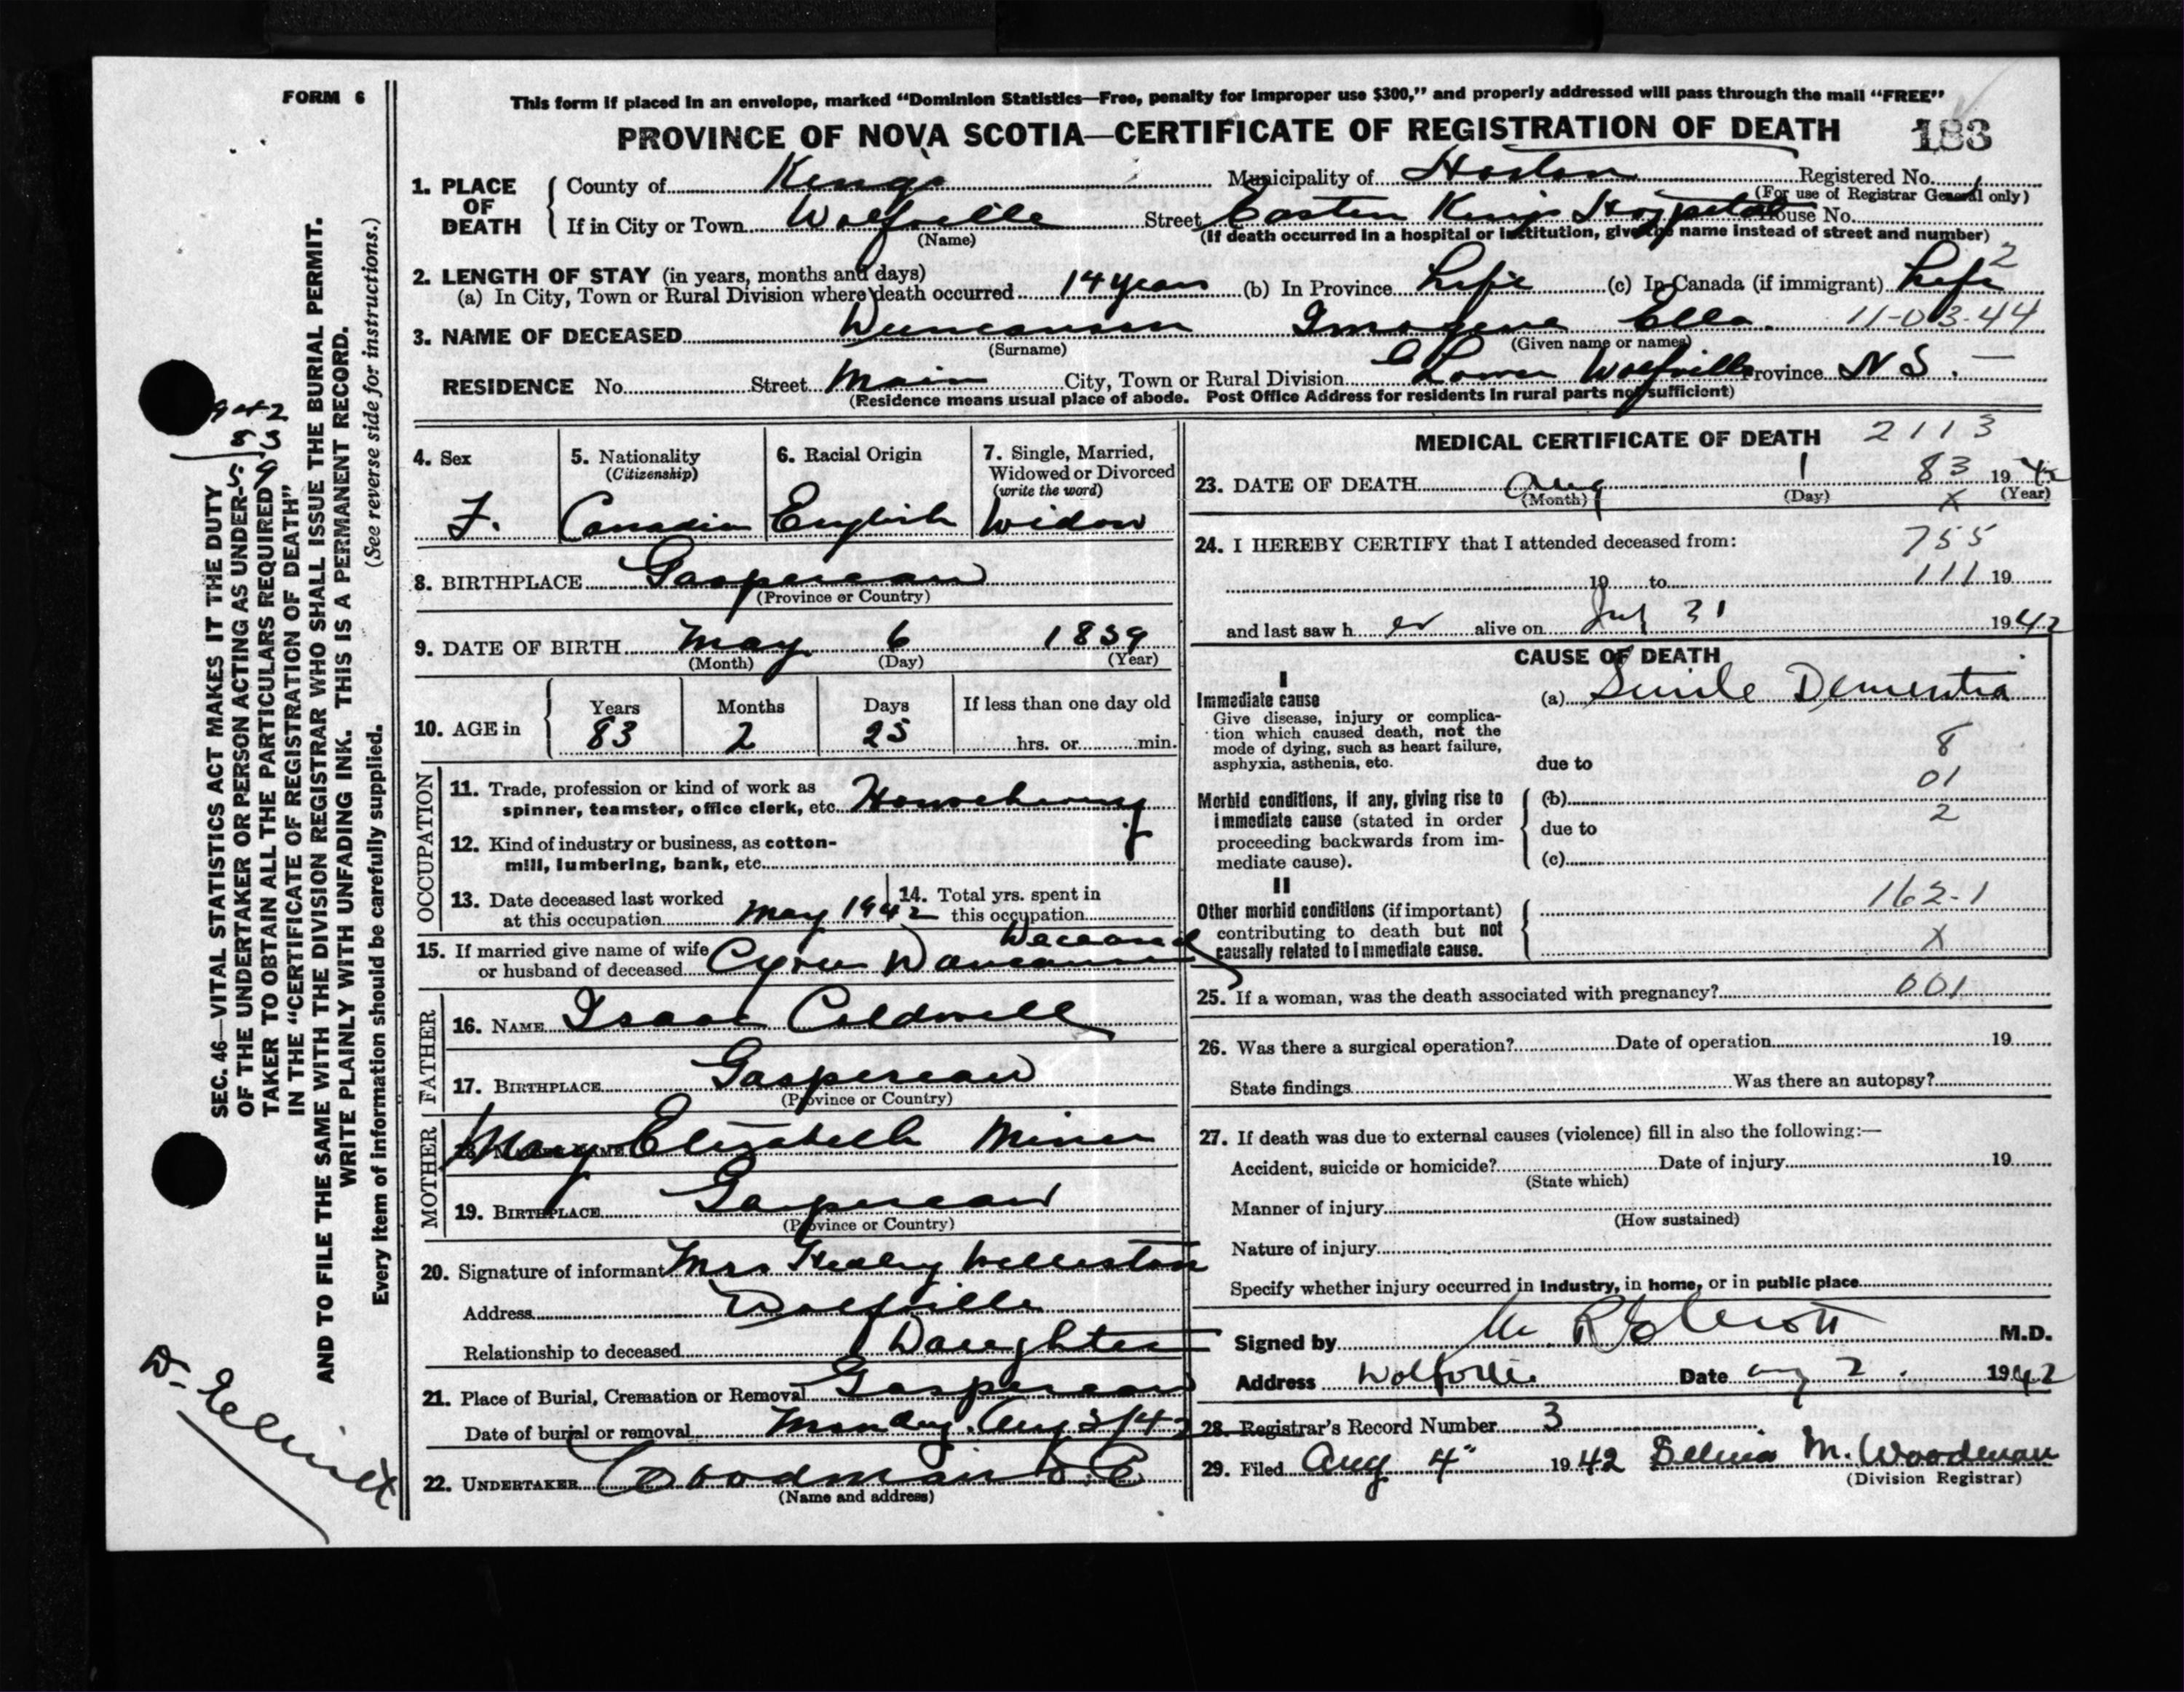 FORM 6
This form if placed in an envelope, marked "Dominion Statistics—Free, penalty for improper use $300," and properly addressed will pass through the mail "FREE"
PROVINCE OF NOVA SCOTIA—CERTIFICATE OF REGISTRATION OF DEATH 183
1. PLACE OF DEATH
County of Kings Municipality of Horton Registered No.
(For use of Registrar General only)
If in City or Town Wolfville Street Eastern Kings Hospital House No.
(Name) (If death occurred in a hospital or institution, give the name instead of street and number)
2. LENGTH OF STAY (in years, months and days) 2
(a) In City, Town or Rural Division where death occurred 14 years (b) In Province Life (c) In Canada (if immigrant) Life
3. NAME OF DECEASED Duncanson Imogene Ella. 11-03-44
(Surname) (Given name or names)
RESIDENCE No. Street Main City, Town or Rural Division Lower Wolfville Province N S. —
(Residence means usual place of abode. Post Office Address for residents in rural parts not sufficient)
4. Sex
F.
5. Nationality
(Citizenship)
Canadian
6. Racial Origin
English
7. Single, Married,
Widowed or Divorced
(write the word)
Widow
8. BIRTHPLACE Gaspereau
(Province or Country)
9. DATE OF BIRTH May 6 1859
(Month) (Day) (Year)
10. AGE in
Years Months Days If less than one day old
83 2 25 hrs. or min.
OCCUPATION
11. Trade, profession or kind of work as
spinner, teamster, office clerk, etc.
12. Kind of industry or business, as cotton-
mill, lumbering, bank, etc.
13. Date deceased last worked
at this occupation May 1942
14. Total yrs. spent in
this occupation
15. If married give name of wife Deceased
or husband of deceased Cyrus Duncanson
FATHER
16. NAME Isaac Coldwell
17. BIRTHPLACE Gaspereau
(Province or Country)
MOTHER
18. MAIDEN NAME Mary Elizabeth Miner
19. BIRTHPLACE Gaspereau
(Province or Country)
20. Signature of informant Mrs Welliston
Address Wolfville
Relationship to deceased Daughter
21. Place of Burial, Cremation or Removal Gaspereau
Date of burial or removal Monday. Aug 3/42
22. UNDERTAKER Woodman
(Name and address)
MEDICAL CERTIFICATE OF DEATH 2113
23. DATE OF DEATH Aug 1 83 1942
(Month) (Day) X (Year)
24. I HEREBY CERTIFY that I attended deceased from: 755
19 to 111 19
and last saw her alive on July 31 1942
CAUSE OF DEATH
I
Immediate cause
Give disease, injury or complica-
tion which caused death, not the
mode of dying, such as heart failure,
asphyxia, asthenia, etc.
(a) Senile Dementia
8
due to
01
Morbid conditions, if any, giving rise to
immediate cause (stated in order
proceeding backwards from im-
mediate cause).
(b)
2
due to
(c)
II
Other morbid conditions (if important)
contributing to death but not
causally related to immediate cause.
162-1
X
25. If a woman, was the death associated with pregnancy? 001
26. Was there a surgical operation? Date of operation 19
State findings Was there an autopsy?
27. If death was due to external causes (violence) fill in also the following:—
Accident, suicide or homicide? Date of injury 19
(State which)
Manner of injury
(How sustained)
Nature of injury
Specify whether injury occurred in industry, in home, or in public place
Signed by M.D.
Address Wolfville Date Aug 2. 1942
28. Registrar's Record Number 3
29. Filed Aug 4" 1942 M. Woodman
(Division Registrar)
SEC. 46—VITAL STATISTICS ACT MAKES IT THE DUTY
OF THE UNDERTAKER OR PERSON ACTING AS UNDER-
TAKER TO OBTAIN ALL THE PARTICULARS REQUIRED
IN THE "CERTIFICATE OF REGISTRATION OF DEATH"
AND TO FILE THE SAME WITH THE DIVISION REGISTRAR WHO SHALL ISSUE THE BURIAL PERMIT.
WRITE PLAINLY WITH UNFADING INK. THIS IS A PERMANENT RECORD.
Every item of information should be carefully supplied. (See reverse side for instructions.)
942
83
59